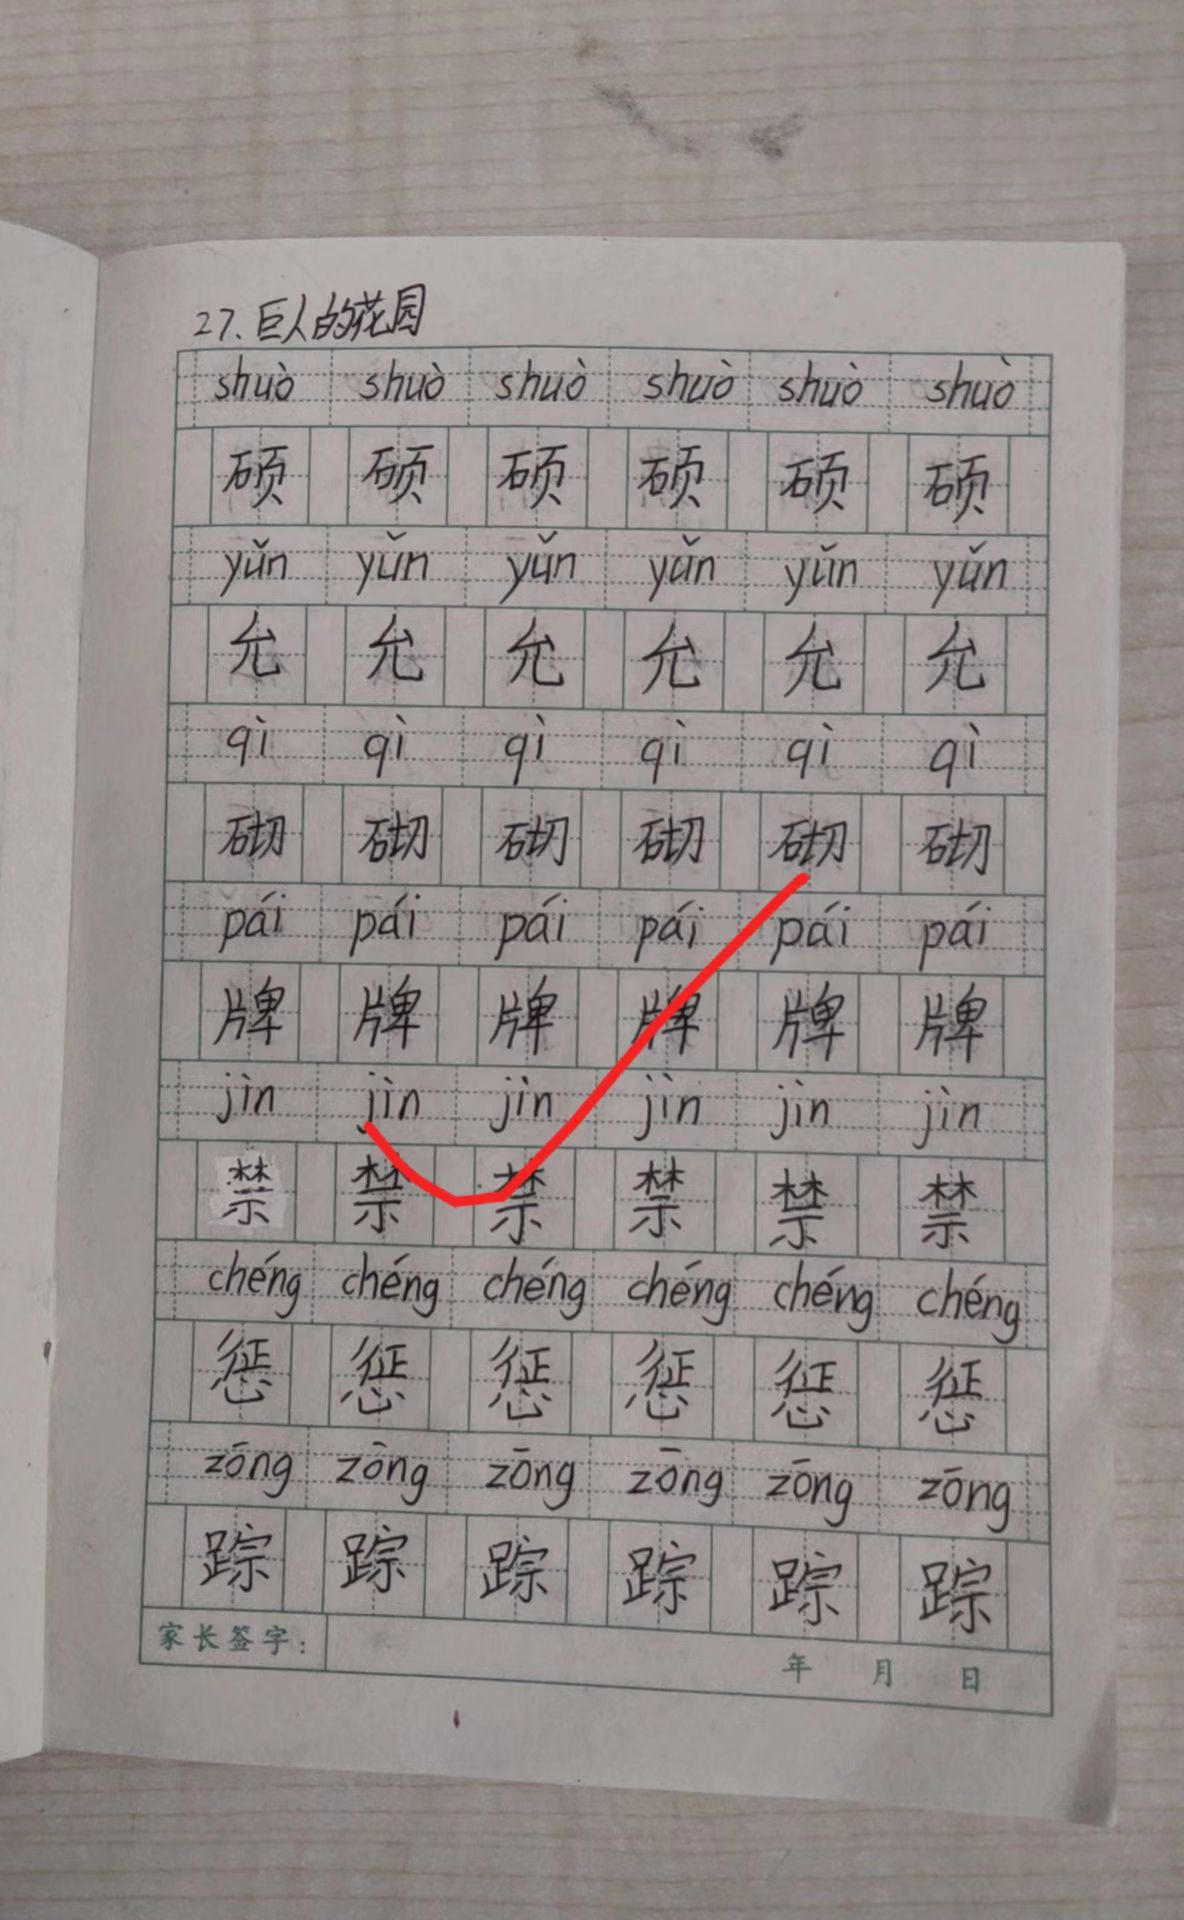 27. 巨人的花园
shuò shuò shuò shuò shuò shuò
硕 硕 硕 硕 硕 硕
yǔn yǔn yǔn yǔn yǔn yǔn
允 允 允 允 允 允
qì qì qì qì qì qì
砌 砌 砌 砌 砌 砌
pái pái pái pái pái pái
牌 牌 牌 牌 牌 牌
jìn jìn jìn jìn jìn jìn
禁 禁 禁 禁 禁 禁
chéng chéng chéng chéng chéng chéng
惩 惩 惩 惩 惩 惩
zōng zōng zōng zōng zōng zōng
踪 踪 踪 踪 踪 踪
家长签字： 年 月 日